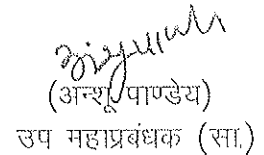 (अन्शू पाण्डेय)
उप महाप्रबंधक (सा.)